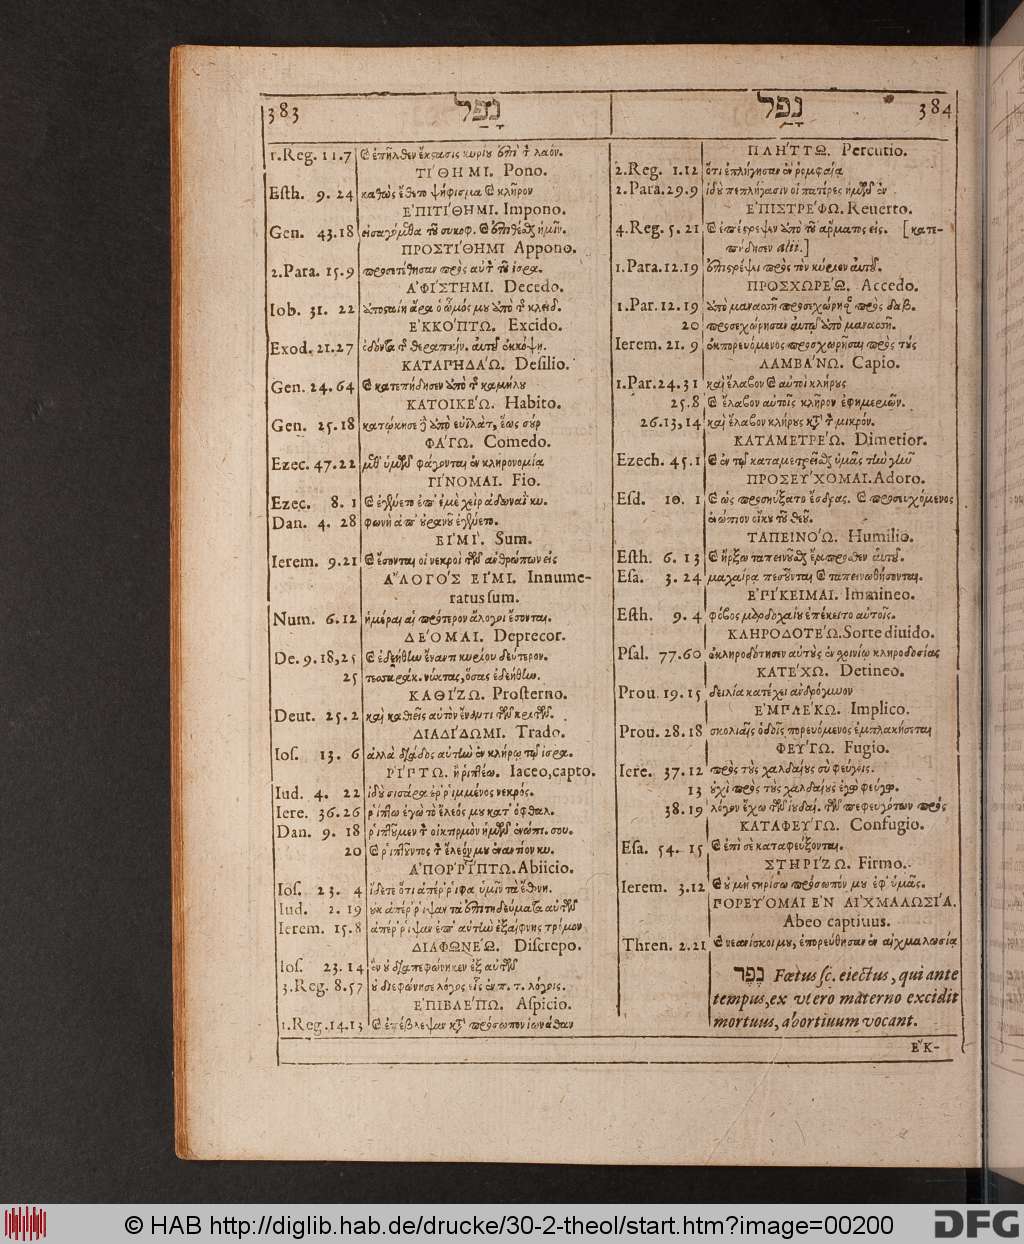 383 נָפַל
1.Reg. 11.7 ϗ ἐπῆλθεν ἔκστασις κυρίου ἐπὶ τ λαόν.
ΤΙΘΗΜΙ. Pono.
Esth. 9. 24 καθὼς ἔθετο ψήφισμα ϗ κλῆρον
ἘΠΙΤΙΘΗΜΙ. Impono.
Gen. 43.18 εἰσαγόμεθα τοῦ συκοφ. ϗ ἐπιθέσθαι ἡμῖν.
ΠΡΟΣΤΙΘΗΜΙ Appono.
2.Para. 15.9 προσετέθησαν πρὸς αὐτ τοῦ ἰσρα.
ἈΦΙΣΤΗΜΙ. Decedo.
Iob. 31. 22 ἄρα ὁ ὦμός μου ἀπὸ τ κλειδ.
ἘΚΚΟΠΤΩ. Excido.
Exod. 21.27 ὀδόντα τ θεραπαίν. αὐτοῦ ἐκκόψῃ.
ΚΑΤΑΠΗΔΑΏ. Desilio.
Gen. 24.64 ϗ κατεπήδησεν ἀπὸ τ καμήλου
ΚΑΤΟΙΚΕΏ. Habito.
Gen. 25.18 κατῴκησε δὲ ἀπὸ εὐϊλὰτ, ἕως σούρ
ΦΑΓΩ. Comedo.
Ezec. 47.22 μεθ᾽ ὑμῶν φάγονται ἐν κληρονομία
ΓΙΝΟΜΑΙ. Fio.
Ezec. 8. 1 ϗ ἐγένετο ἐπ᾽ ἐμὲ χεὶρ ἀδωναῒ κυ.
Dan. 4. 28 φωνὴ ἀπ᾽ οὐρανοῦ ἐγένετο.
ΕΙΜΙ. Sum.
Ierem. 9.21 ϗ ἔσονται οἱ νεκροὶ τῶν ἀνθρώπων εἰς
ἌΛΟΓΟΣ ΕΙΜΙ. Innume-
ratus sum.
Num. 6.12 ἡμέραι αἱ πρότερον ἄλογοι ἔσονται.
ΔΕΟΜΑΙ. Deprecor.
De. 9.18,25 ϗ ἐδεήθην ἔναντι κυρίου δεύτερον.
25 τεσσαράκ. νύκτας, ὅσας ἐδεήθην.
ΚΑΘΙΖΩ. Prosterno.
Deut. 25.2 καὶ καθιεῖς αὐτὸν ἔναντι τῶν κριτῶν.
ΔΙΑΔΙΔΩΜΙ. Trado.
Ios. 13. 6 ἀλλὰ διάδος αὐτὴν ἐν κλήρῳ τῷ ἰσρα.
ῬΙΠΤΩ. ἢ ῥιπτέω. Iaceo, capto.
Iud. 4. 22 ἰδοὺ σισάρα ἐῤῥιμμένος νεκρός.
Iere. 36.26 ῥίπτω ἐγὼ τὸ ἔλεός μου κατ᾽ ὀφθαλ.
Dan. 9. 18 ῥιπτοῦμεν τ οἰκτιρμὸν ἡμῶν ἐνώπι. σου.
20 ϗ ῥιπτοῦντος τ ἔλεόν μου ἐναντίον κυ.
ἈΠΟῤῬΙΠΤΩ. Abiicio.
Ios. 23. 4 ἴδετε ὅτι ἀπέῤῥιφα ὑμῖν τὰ ἔθνη.
Iud. 2. 19 οὐκ ἀπέῤῥιψαν τὰ ἐπιτηδεύματα αὐτῶν
Ierem. 15.8 ἀπέῤῥιψαν ἐπ᾽ αὐτὴν ἐξαίφνης τρόμον
ΔΙΑΦΩΝΕΏ. Discrepo.
Ios. 23.14 οὐ διαπεφώνηκεν ἐξ αὐτῶν
3.Reg. 8.57 οὐ διεφώνησε λόγος εἷς ἐν π. τ. λόγοις.
ἘΠΙΒΛΕΠΩ. Aspicio.
1.Reg. 14.13 ϗ ἐπέβλεψαν κτ πρόσωπον ἰωνάθαν
נָפַל 384
ΠΛΗΤΤΩ. Percutio.
2.Reg. 1.12 ὅτι ἐπλήγησαν ἐν ῥομφαίᾳ
2.Para. 29.9 ἰδοὺ πεπλήγασιν οἱ πατέρες ἡμῶν ἐν
ἘΠΙΣΤΡΕΦΩ. Reuerto.
4.Reg. 5. 21 ϗ ἐπέστρεψεν ἀπὸ τοῦ ἅρματος εἰς. [κατε-
πήδησεν Alii.]
1.Para. 12.19 ἐπιστρέψει πρὸς τὸν κύριον αὐτοῦ.
ΠΡΟΣΧΩΡΕΏ. Accedo.
1.Par. 12.19 ἀπὸ μανασσῆ προσεχώρησ πρὸς δαβ.
20 προσεχώρησαν αὐτῷ ἀπὸ μανασσῆ.
Ierem. 21. 9 ἐκπορευόμενος προσχωρῆσαι πρὸς τοὺς
ΛΑΜΒΑΝΩ. Capio.
1.Par. 24.31 καὶ ἔλαβον ϗ αὐτοὶ κλήρους
25.8 ϗ ἔλαβον αὐτοῖς κλῆρον ἐφημεριῶν.
26.13,14 καὶ ἔλαβον κλήρους κτ τ μικρόν.
ΚΑΤΑΜΕΤΡΕΏ. Dimetior.
Ezech. 45.1 ϗ ἐν τῷ καταμετρεῖσθαι ὑμᾶς τὴν γῆν
ΠΡΟΣΕΥΧΟΜΑΙ. Adoro.
Esd. 10. 1 ϗ ὡς προσηύξατο ἔσδρας. ϗ προσευχόμενος
ἐνώπιον οἴκου τοῦ θεοῦ.
ΤΑΠΕΙΝΟΏ. Humilio.
Esth. 6. 13 ϗ ἦρξω ταπεινοῦσθαι ἔμπροσθεν αὐτοῦ.
Esa. 3. 24 μαχαίρᾳ πεσοῦνται ϗ ταπεινωθήσονται.
ἘΠΙΚΕΙΜΑΙ. Immineo.
Esth. 9. 4 φόβος μαρδοχαίου ἐπέκειτο αὐτοῖς.
ΚΛΗΡΟΔΟΤΕΏ. Sorte diuido.
Psal. 77.60 ἐκληροδότησεν αὐτοὺς ἐν σχοινίῳ κληροδοσίας
ΚΑΤΕΧΩ. Detineo.
Prou. 19. 15 δειλία κατέχει ἀνδρόγυνον
ἘΜΠΛΕΚΩ. Implico.
Prou. 28. 18 σκολιαῖς ὁδοῖς πορευόμενος ἐμπλακήσεται
ΦΕΥΓΩ. Fugio.
Iere. 37.12 πρὸς τοὺς χαλδαίους σὺ φεύγεις.
13 οὐχὶ πρὸς τοὺς χαλδαίους ἐγὼ φεύγω.
38.19 λόγον ἔχω τῶν ἰουδαί. τῶν πεφευγότων πρὸς
ΚΑΤΑΦΕΥΓΩ. Confugio.
Esa. 54. 15 ϗ ἐπὶ σὲ καταφεύξονται.
ΣΤΗΡΙΖΩ. Firmo.
Ierem. 3.12 ϗ οὐ μὴ στηρίσω πρόσωπόν μου ἐφ᾽ ὑμᾶς.
ΠΟΡΕΥΟΜΑΙ ἘΝ ΑΙΧΜΑΛΩΣΙΑ.
Abeo captiuus.
Thren. 2.21 ϗ νεανίσκοι μου, ἐπορεύθησαν ἐν αἰχμαλωσίᾳ
נֵפֶל Fœtus sc. eiectus, qui ante
tempus, ex vtero materno excidit
mortuus, abortiuum vocant.
ἘΚ-
© HAB http://diglib.hab.de/drucke/30-2-theol/start.htm?image=00200
DFG